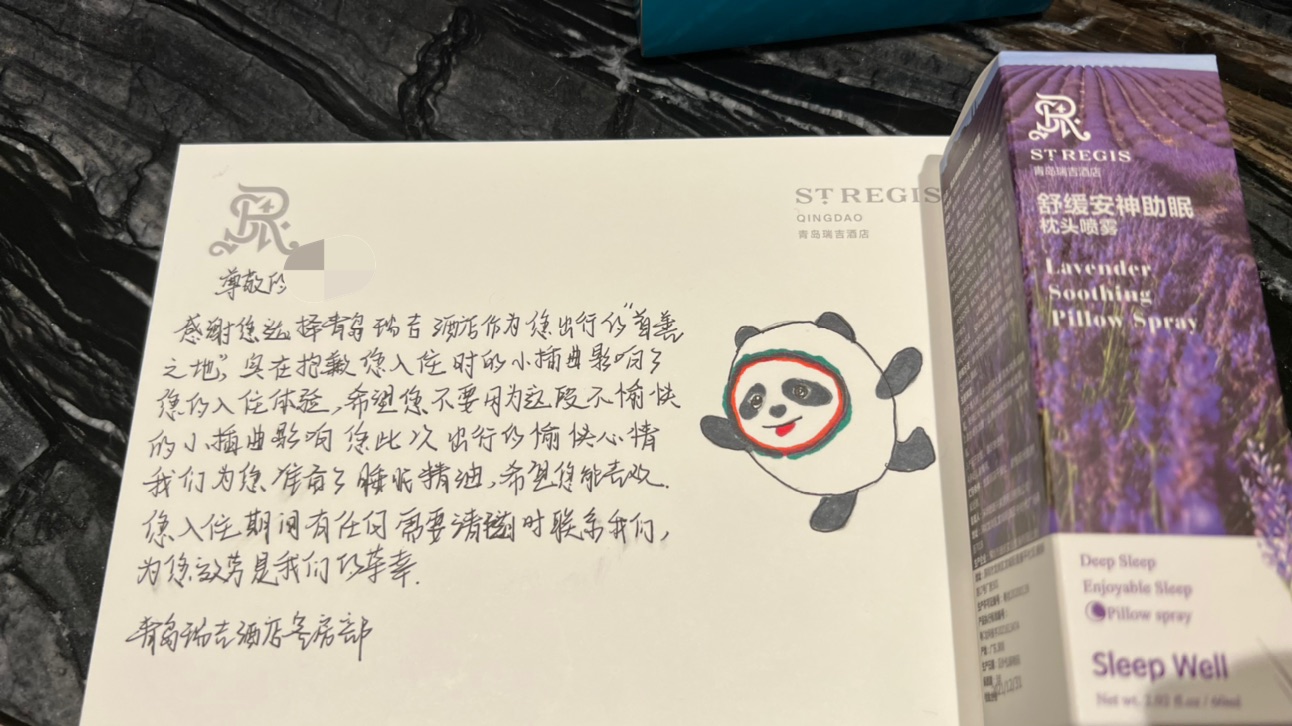 ST REGIS
QINGDAO
青岛瑞吉酒店
尊敬的
感谢您选择青岛瑞吉酒店作为您出行的"首善
之地",实在抱歉您入住时的小插曲影响了
您的入住体验,希望您不要因为这段不愉快
的小插曲影响您此次出行的愉快心情
我们为您准备了睡眠精油,希望您能喜欢.
您入住期间有任何需要请随时联系我们,
为您效劳是我们的荣幸.
青岛瑞吉酒店客房部
ST REGIS
青岛瑞吉酒店
舒缓安神助眠
枕头喷雾
Lavender
Soothing
Pillow Spray
Deep Sleep
Enjoyable Sleep
Pillow spray
Sleep Well
Net wt.